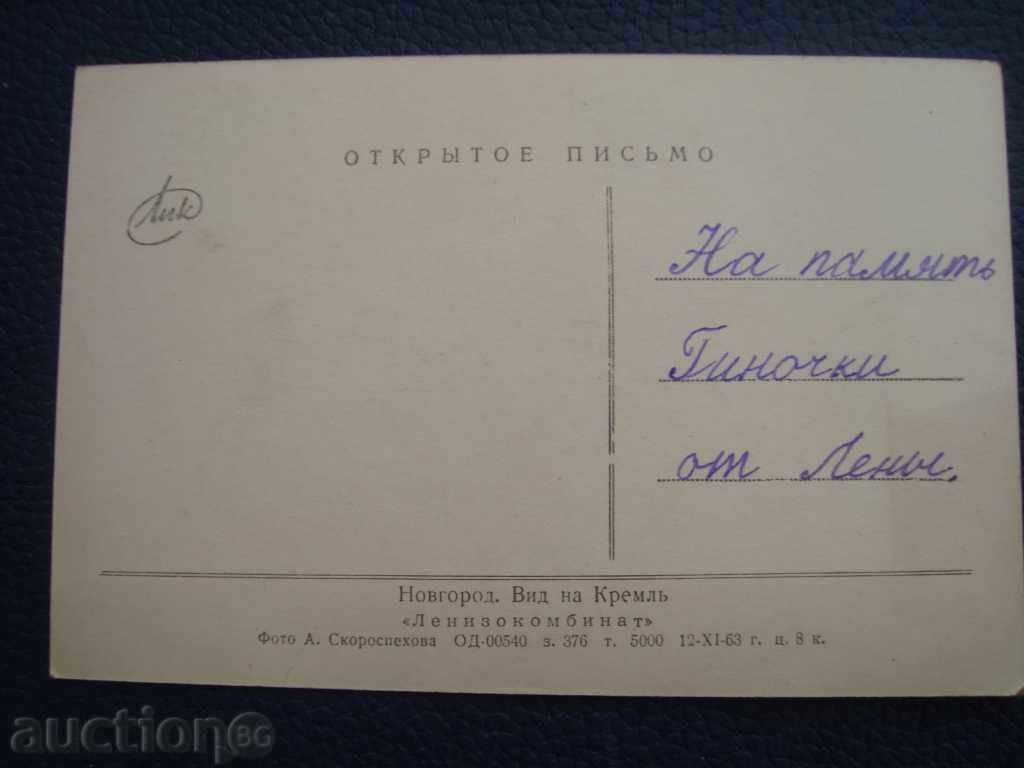 ОТКРЫТОЕ ПИСЬМО
Лик
На память
Гиночки
от Лены.
Новгород. Вид на Кремль
«Ленизокомбинат»
Фото А. Скороспехова ОД-00540 з. 376 т. 5000 12-XI-63 г. ц. 8 к.
auction BG